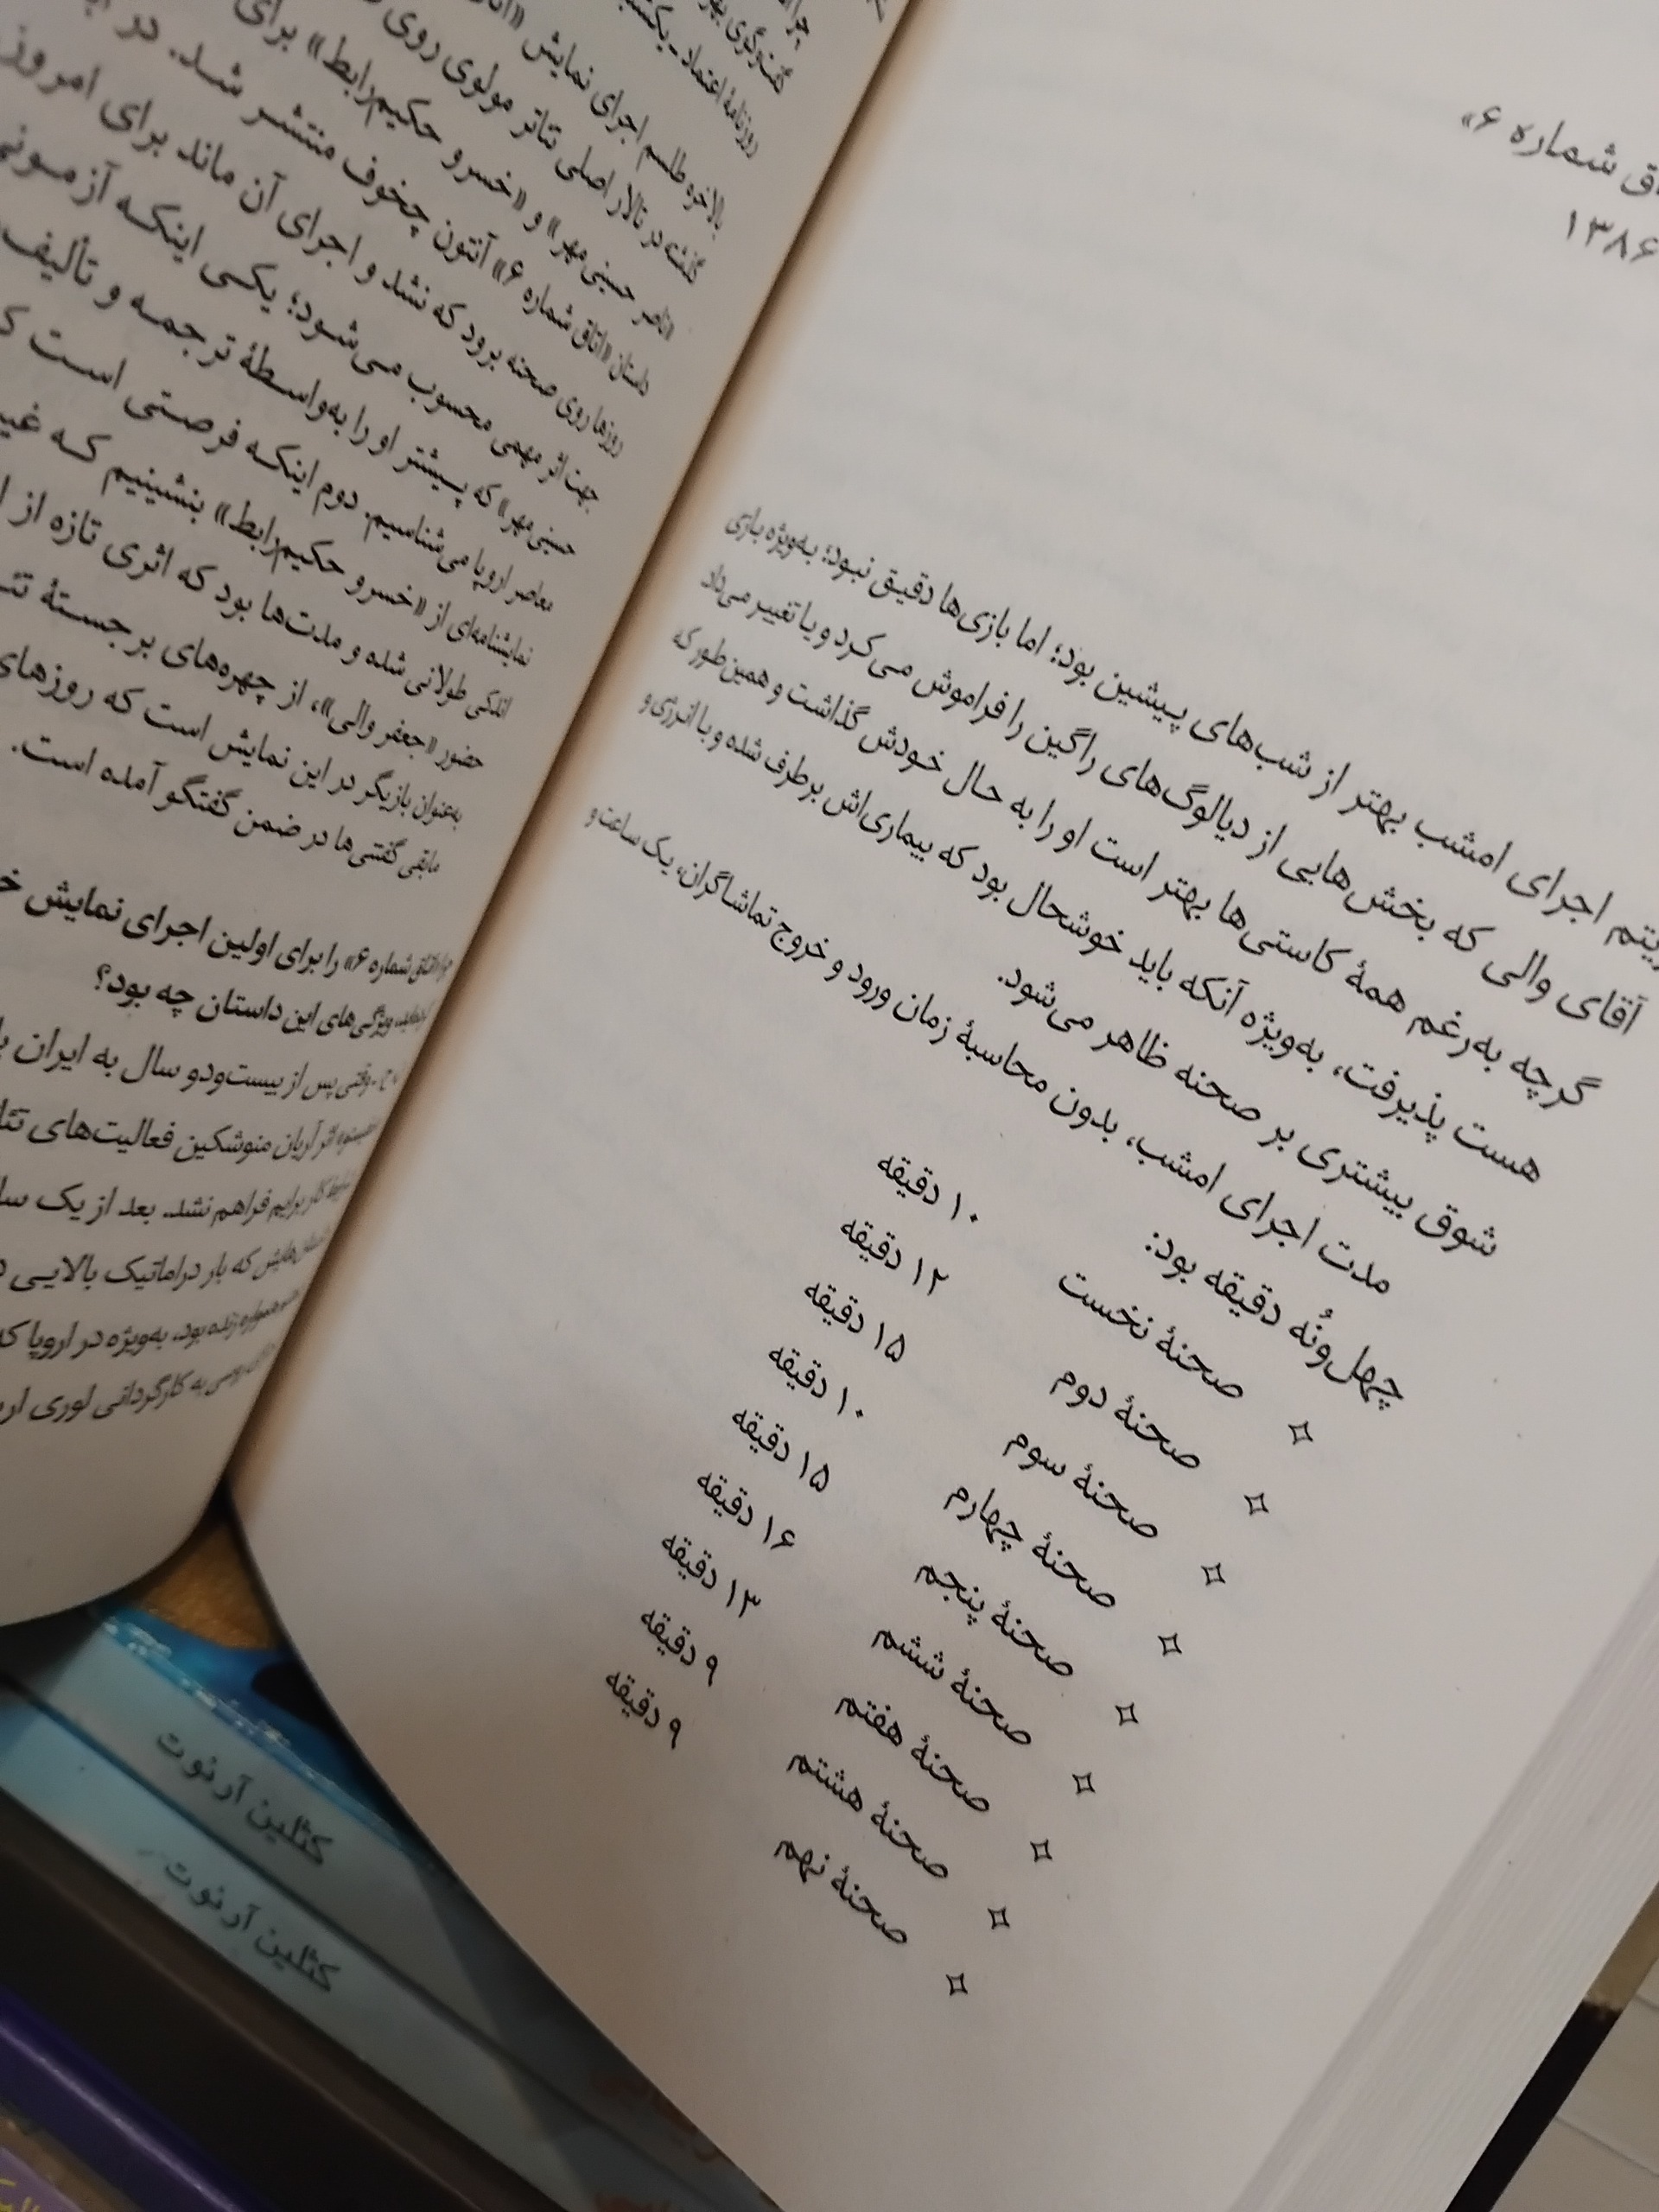 شماره ۶»
۱۳۸۶
اجرای امشب بهتر از شب‌های پیشین بود؛ اما بازی‌ها دقیق نبود؛ به‌ویژه بازی
آقای والی که بخش‌هایی از دیالوگ‌های راگین را فراموش می‌کرد و یا تغییر می‌داد
گرچه به‌رغم همهٔ کاستی‌ها بهتر است او را به حال خودش گذاشت و همین‌طور که
هست پذیرفت، به‌ویژه آنکه باید خوشحال بود که بیماری‌اش برطرف شده و با انرژی و
شوق بیشتری بر صحنه ظاهر می‌شود.
مدت اجرای امشب، بدون محاسبهٔ زمان ورود و خروج تماشاگران، یک ساعت و
چهل‌ونُه دقیقه بود:
✧ صحنهٔ نخست ۱۰ دقیقه
✧ صحنهٔ دوم ۱۲ دقیقه
✧ صحنهٔ سوم ۱۵ دقیقه
✧ صحنهٔ چهارم ۱۰ دقیقه
✧ صحنهٔ پنجم ۱۵ دقیقه
✧ صحنهٔ ششم ۱۶ دقیقه
✧ صحنهٔ هفتم ۱۳ دقیقه
✧ صحنهٔ هشتم ۹ دقیقه
✧ صحنهٔ نهم ۹ دقیقه
گفت‌وگوی
روزنامهٔ اعتماد - یکشنبه
بالاخره طلسم اجرای نمایش
گذشته در تالار اصلی تئاتر مولوی روی
«ناصر حسینی‌مهر» و «خسرو حکیم‌رابط» برای
داستان «اتاق شماره ۶» آنتون چخوف منتشر شد. در
روزها روی صحنه برود که نشد و اجرای آن ماند برای امروز
جهت اثر مهمی محسوب می‌شود؛ یکی اینکه آزمونی
حسینی‌مهر» که پیشتر او را به‌واسطهٔ ترجمه و تألیف
معاصر اروپا می‌شناسیم. دوم اینکه فرصتی است
نمایشنامه‌ای از «خسرو حکیم‌رابط» بنشینیم که
اندکی طولانی شده و مدت‌ها بود که اثری تازه از
حضور «جعفر والی»، از چهره‌های برجستهٔ
به‌عنوان بازیگر در این نمایش است که روزهای
مابقی گفتنی‌ها در ضمن گفتگو آمده است.
چرا «اتاق شماره ۶» را برای اولین اجرای نمایش
ویژگی‌های این داستان چه بود؟
وقتی پس از بیست‌ودو سال به ایران
اثر آریان منوشکین فعالیت‌های
کار برایم فراهم نشد. بعد از یک
که بار دراماتیک بالایی
همواره زنده بود، به‌ویژه در اروپا
به کارگردانی لوری
کثلین آرنوت
کثلین آرنوت